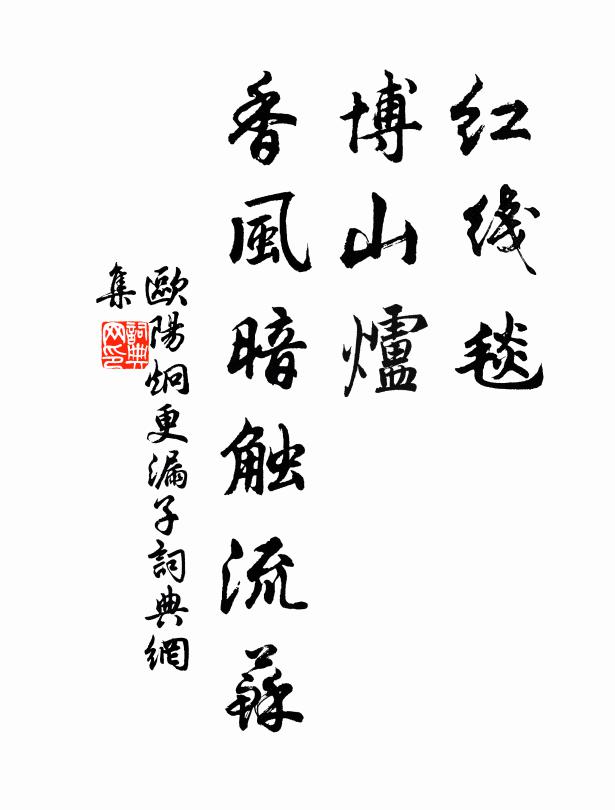 红线毯
博山爐
香風暗触流蘇
歐陽炯更漏子詞典網
集
詞典
网印